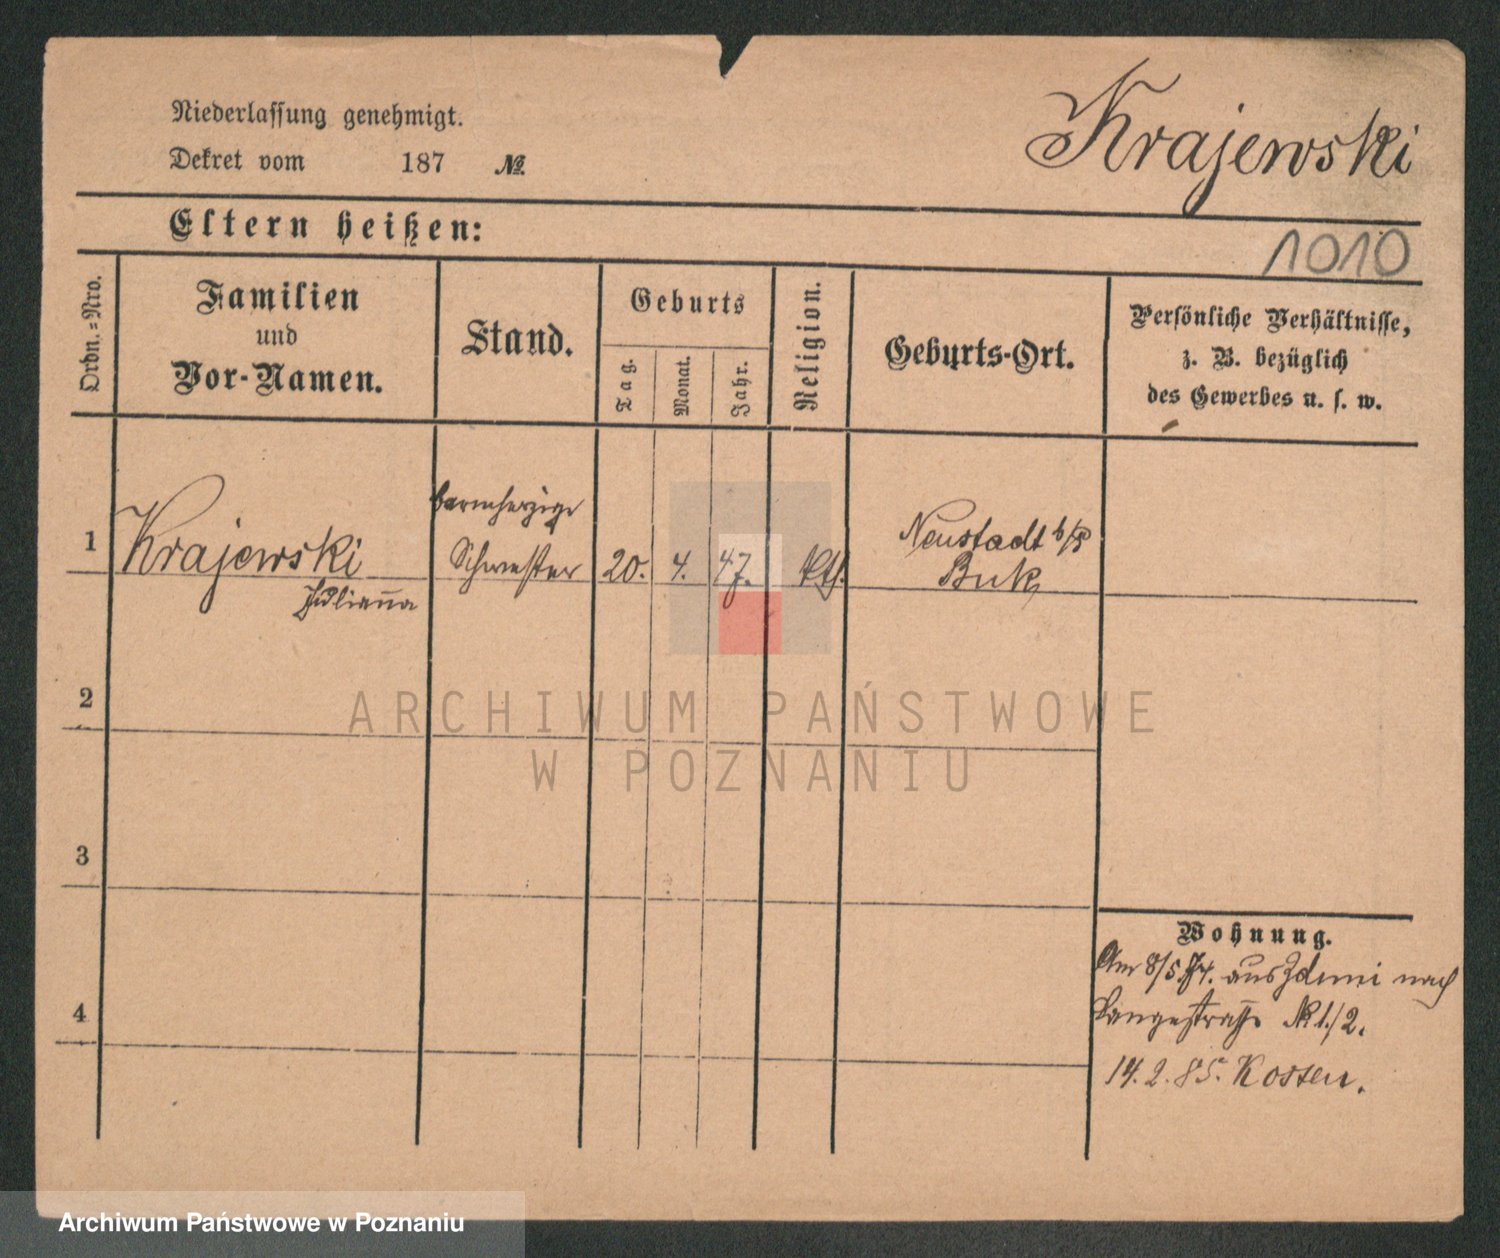 Krajewski
Niederlassung genehmigt.
Dekret vom 187 №
Eltern heißen:
1010
Ordn.=Nro.
Familien
und
Vor-Namen.
Stand.
Geburts
Tag.
Monat.
Jahr.
Religion.
Geburts-Ort.
Persönliche Verhältnisse,
z. B. bezüglich
des Gewerbes u. s. w.
1
Krajewski
Julianna
barmherzige
Schwester
20.
4.
47.
kth.
Neustadt b/P
Buk
2
3
4
Wohnung.
Am 8/5. 74. aus Zduni nach
Langestraße № 1./2.
14. 2. 85. Kosten.
ARCHIWUM PAŃSTWOWE
W POZNANIU
Archiwum Państwowe w Poznaniu